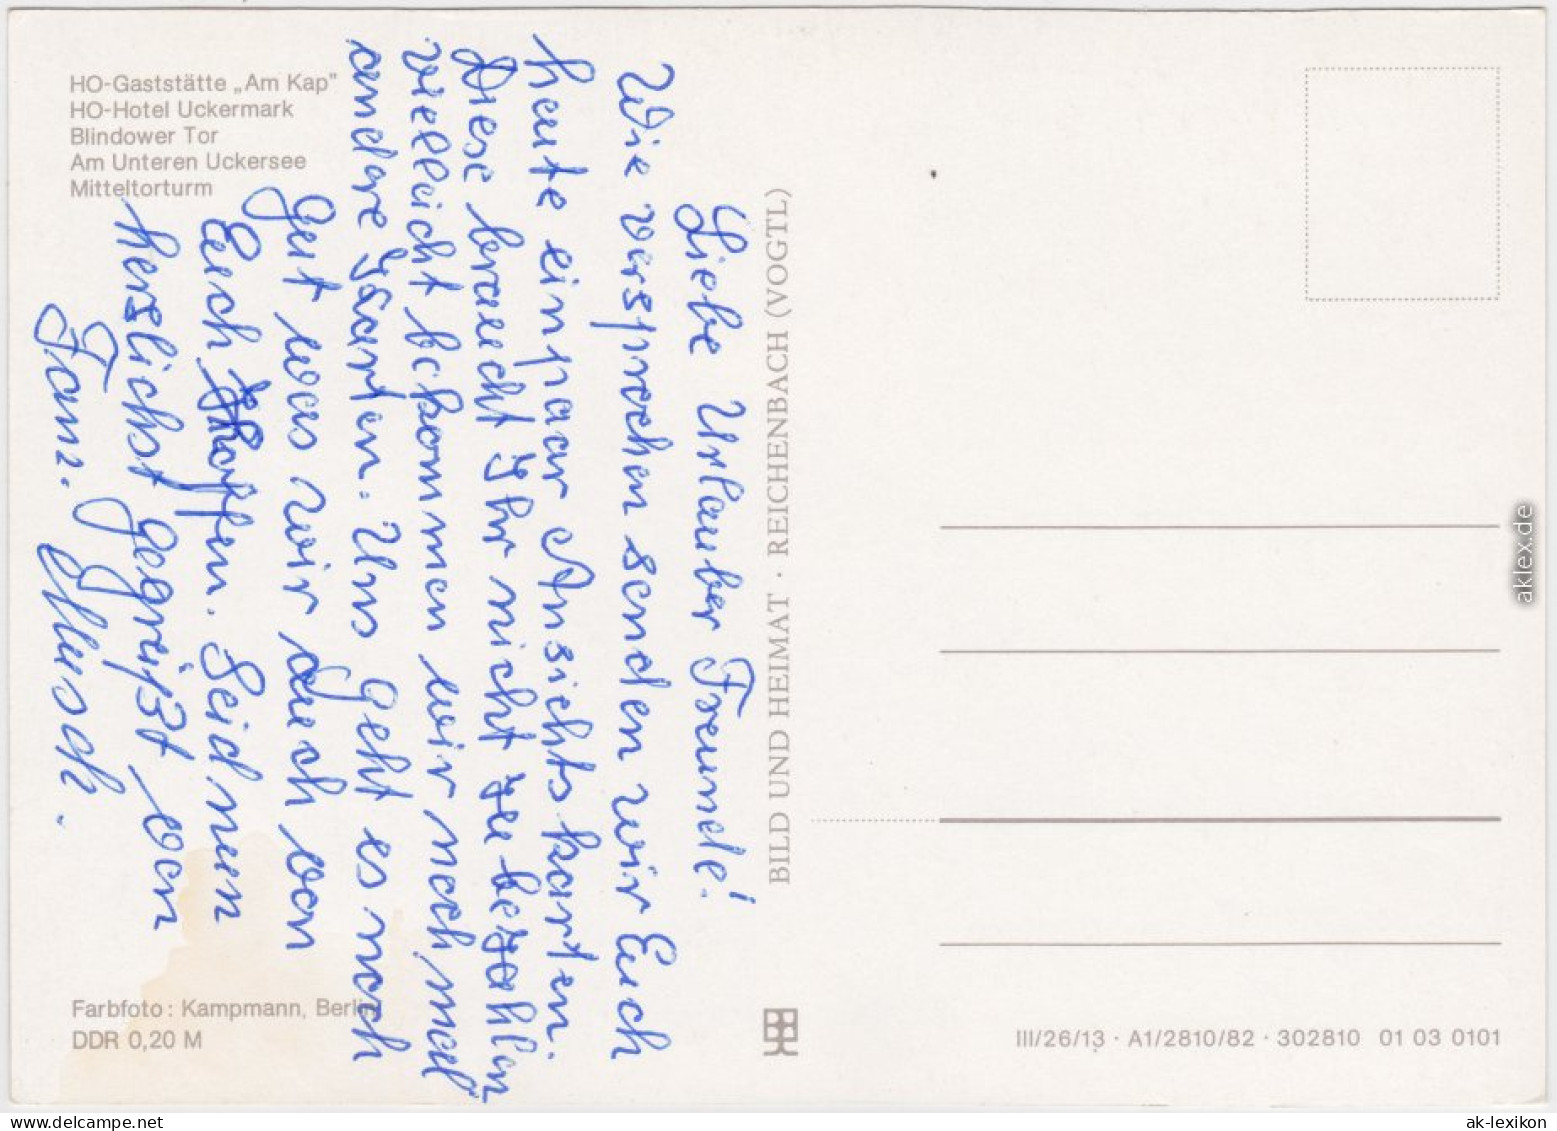 HO-Gaststätte „Am Kap"
HO-Hotel Uckermark
Blindower Tor
Am Unteren Uckersee
Mitteltorturm
Liebe Urlauber Freunde!
Wie versprochen senden wir Euch
heute ein paar Ansichtskarten.
Diese braucht Ihr nicht zu bezahlen
vielleicht bekommen wir noch mal
andere Karten. Uns geht es noch
gut was wir auch von
Euch hoffen. Seid nun
herslichst gegrüßt von
Fam.
BILD UND HEIMAT · REICHENBACH (VOGTL)
Farbfoto: Kampmann, Berlin
DDR 0,20 M
III/26/13 · A1/2810/82 · 302810 01 03 0101
aklex.de
ak-lexikon